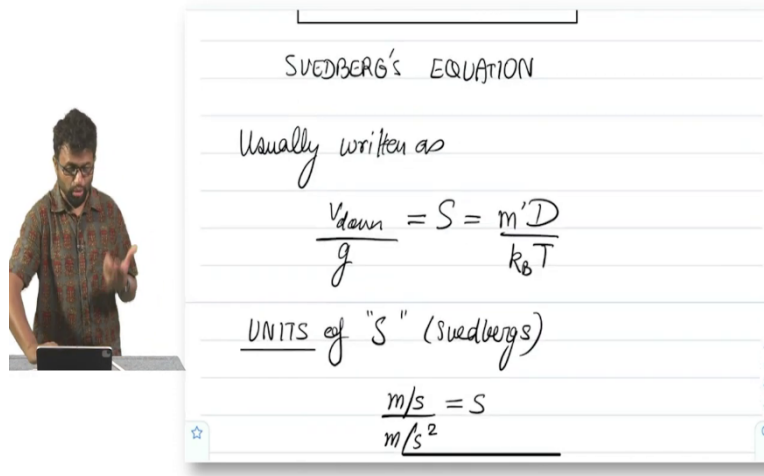 SVEDBERG's EQUATION
Usually written as
v_down / g = S = m'D / k_B T
UNITS of "S" (svedbergs)
m/s / m/s² = s